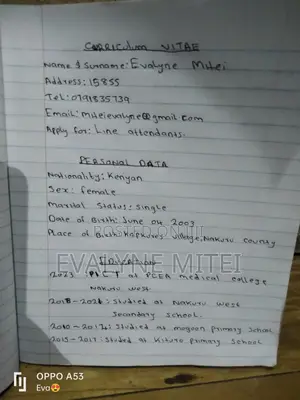 CURRICULUM VITAE
Name & Surname: Evalyne Mitei
Address: 15855
Tel: 0791835739
Email: miteievalyne@gmail.com
Apply for: Line attendants.
PERSONAL DATA
Nationality: Kenyan
Sex: female
Marital Status: Single
Date of Birth: June 04 2003
POSTED ON JIJI
Place of Birth: Kapkures village, Nakuru county
EDUCATION
EVALYNE MITEI
2023 at PCEA medical college
Nakuru West.
2018 - : Studied at Nakuru West
Secondary School.
: Studied at mogoon primary school
- 2017: Studied at primary school
OPPO A53
Eva😍